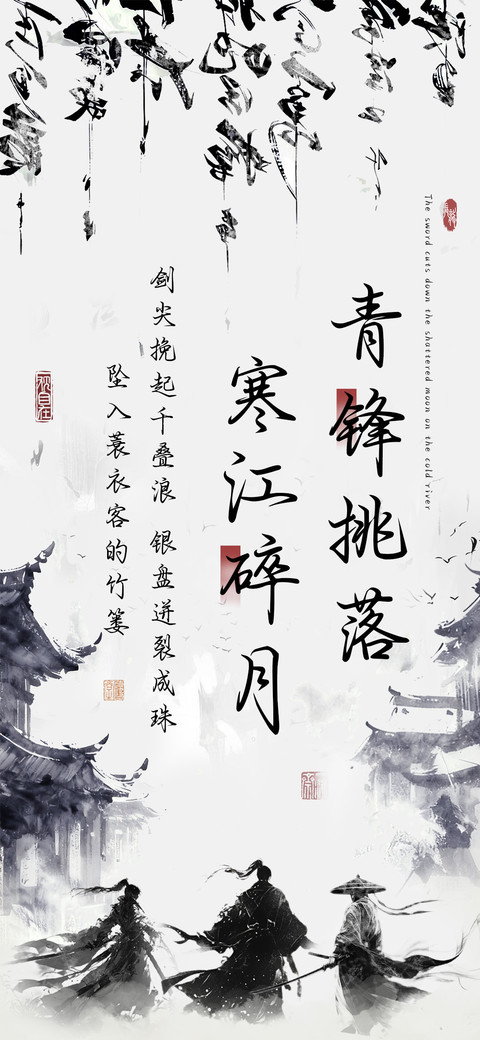 The sword cuts down the shattered moon on the cold river
青锋挑落
寒江碎月
剑尖挽起千叠浪 银盘迸裂成珠
坠入蓑衣客的竹篓